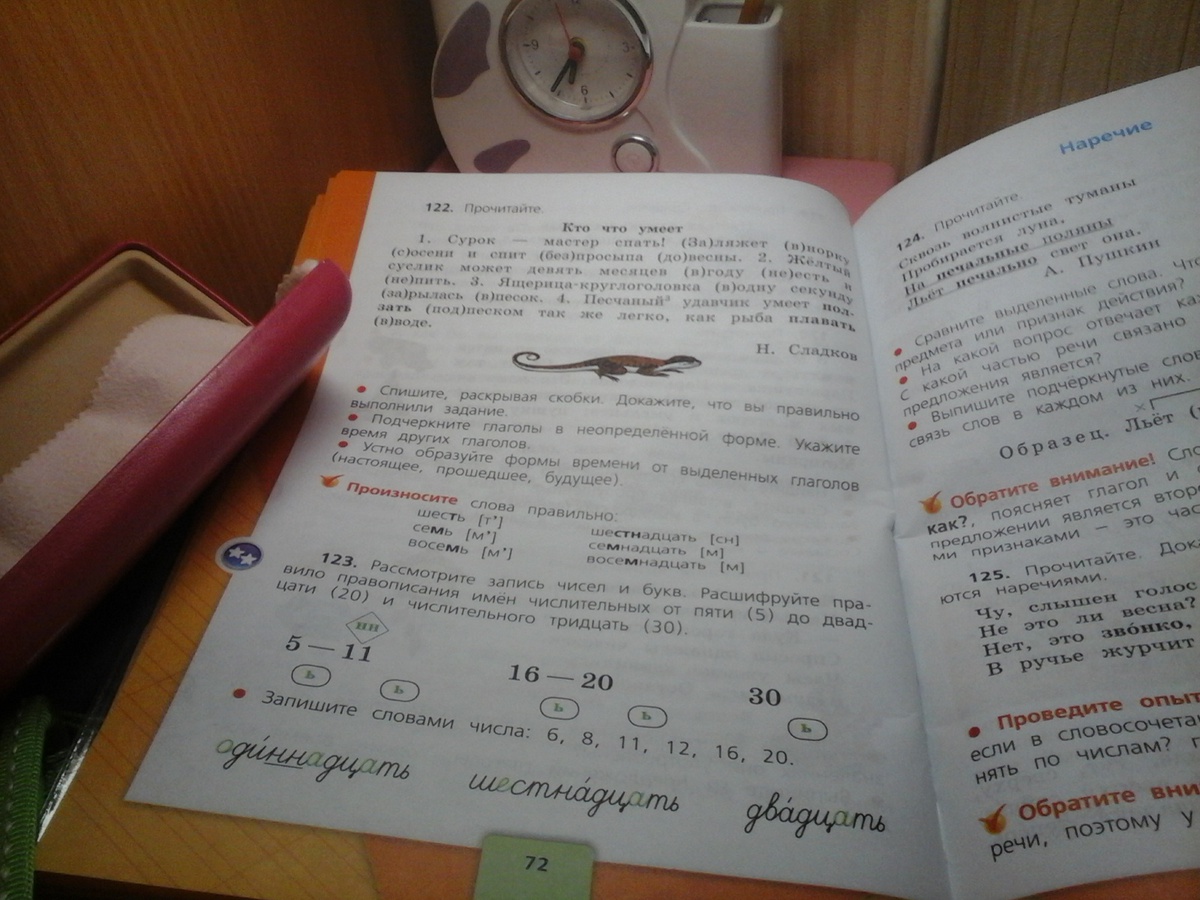 9
3
6
122. Прочитайте.
Кто что умеет
1. Сурок — мастер спать! (За)ляжет (в)норку
(с)осени и спит (без)просыпа (до)весны. 2. Жёлтый
суслик может девять месяцев (в)году (не)есть и
(не)пить. 3. Ящерица-круглоголовка (в)одну секунду
(за)рылась (в)песок. 4. Песчаный³ удавчик умеет пол-
зать (под)песком так же легко, как рыба плавать
(в)воде.
Н. Сладков
• Спишите, раскрывая скобки. Докажите, что вы правильно
выполнили задание.
• Подчеркните глаголы в неопределённой форме. Укажите
время других глаголов.
• Устно образуйте формы времени от выделенных глаголов
(настоящее, прошедшее, будущее).
Произносите слова правильно:
шесть [т']
шестнадцать [сн]
семь [м']
семнадцать [м]
восемь [м']
восемнадцать [м]
123. Рассмотрите запись чисел и букв. Расшифруйте пра-
вило правописания имён числительных от пяти (5) до двад-
цати (20) и числительного тридцать (30).
нн
5 — 11
16 — 20
30
ь
ь
ь
ь
ь
• Запишите словами числа: 6, 8, 11, 12, 16, 20.
оди́ннадцать
шестна́дцать
два́дцать
72
Наречие
124. Прочитайте.
Сквозь волнистые туманы
Пробирается луна,
На печальные поляны
Льёт печально свет она.
А. Пушкин
• Сравните выделенные слова. Что
предмета или признак действия?
• На какой вопрос отвечает
С какой частью речи связано
предложения является?
• Выпишите подчёркнутые
связь слов в каждом из них.
×
Образец. Льёт
Обратите внимание!
как?, поясняет глагол и
предложении является
ми признаками — это
125. Прочитайте.
ются наречиями.
Чу, слышен голос
Не это ли весна?
Нет, это зво́нко,
В ручье журчит
• Проведите
если в
нять по числам?
Обратите
речи, поэтому у